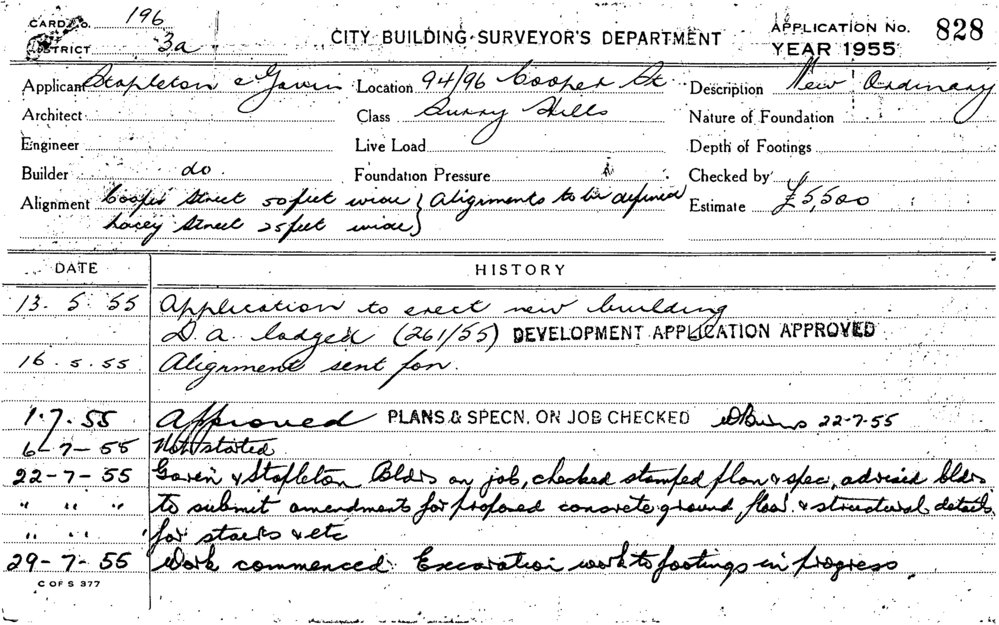 CARD No. 196
DISTRICT 3a
CITY BUILDING SURVEYOR'S DEPARTMENT
APPLICATION No. 828
YEAR 1955
Applicant Stapleton & Gavin Location 94/96 Cooper St. Description New Ordinary
Architect Class Surry Hills Nature of Foundation
Engineer Live Load Depth of Footings
Builder do. Foundation Pressure Checked by
Alignment Cooper Street 50 feet wide } Alignments to be defined Estimate £5,500
Lacey Street 25 feet wide }
DATE HISTORY
13. 5. 55 Application to erect new building
D. A. lodged (261/55) DEVELOPMENT APPLICATION APPROVED
16. 5. 55 Alignment sent for.
1.7.55 Approved PLANS & SPECN. ON JOB CHECKED 22-7-55
6-7-55 Not started
22-7-55 Gavin & Stapleton Bldrs on job, checked stamped plan & spec, advised bldrs
" " " to submit amendment for proposed concrete ground floor & structural details
" " " for stairs & etc
29-7-55 Work commenced. Excavation work to footings in progress.
C OF S 377